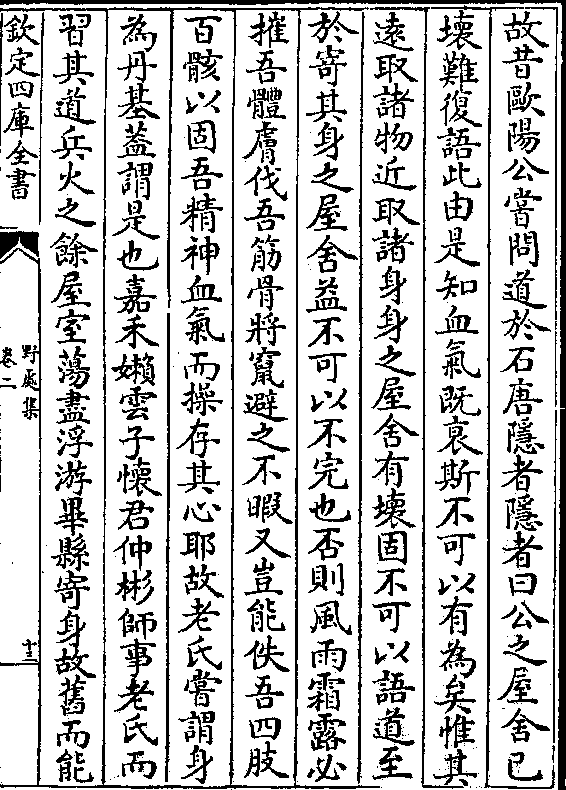 故昔歐陽公嘗問道於石唐隱者隱者曰公之屋舍已
壞難復語此由是知血氣既衰斯不可以有為矣惟其
遠取諸物近取諸身身之屋舍有壞固不可以語道至
於寄其身之屋舍益不可以不完也否則風雨霜露必
摧吾體膚伐吾筋骨將竄避之不暇又豈能佚吾四肢
百骸以固吾精神血氣而操存其心耶故老氏嘗謂身
為丹基葢謂是也嘉禾嬾雲子懷君仲彬師事老氏而
習其道兵火之餘屋室蕩盡浮游畢縣寄身故舊而能
欽定四庫全書
野處集
卷二
十三